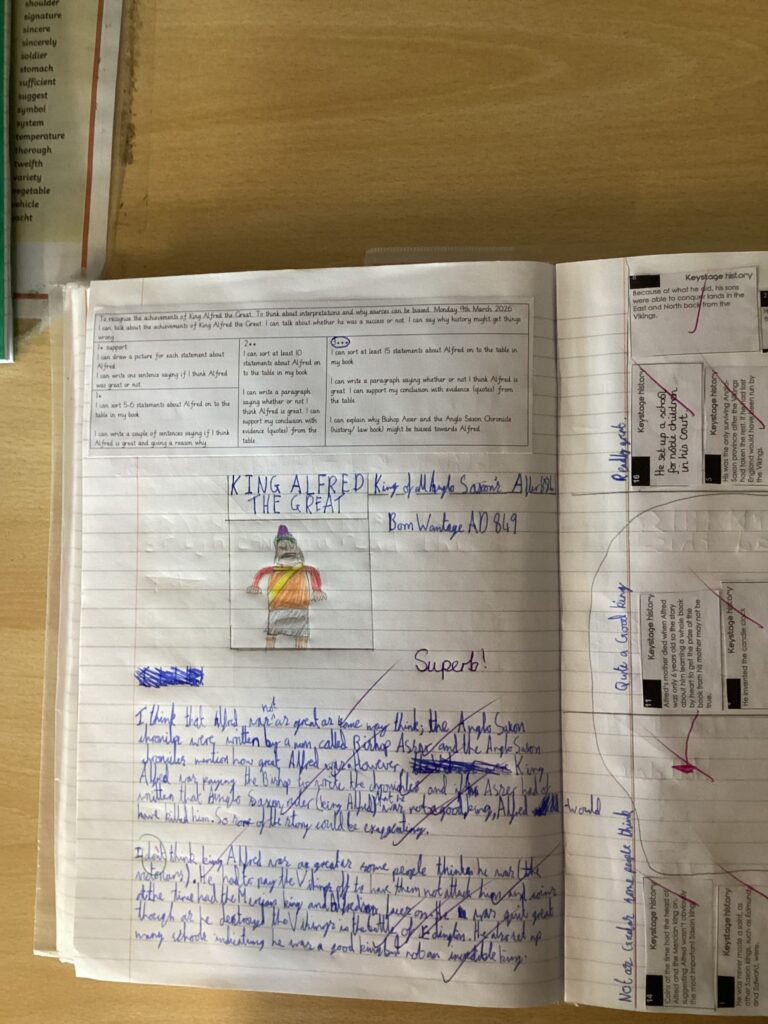 shoulder
signature
sincere
sincerely
soldier
stomach
sufficient
suggest
symbol
system
temperature
thorough
twelfth
variety
vegetable
vehicle
yacht
To recognise the achievements of King Alfred the Great. To think about interpretations and why sources can be biased. Monday 9th March 2026
I can talk about the achievements of King Alfred the Great. I can talk about whether he was a success or not. I can say why history might get things
wrong
1* support
I can draw a picture for each statement about
Alfred
I can write one sentence saying if I think Alfred
was great or not
1*
I can sort 5-6 statements about Alfred on to the
table in my book
I can write a couple of sentences saying if I think
Alfred is great and giving a reason why.
2**
I can sort at least 10
statements about Alfred on
to the table in my book
I can write a paragraph
saying whether or not I
think Alfred is great. I can
support my conclusion with
evidence (quotes) from the
table.
3***
I can sort at least 15 statements about Alfred on to the table in
my book
I can write a paragraph saying whether or not I think Alfred is
great. I can support my conclusion with evidence (quotes) from
the table
I can explain why Bishop Asser and the Anglo Saxon Chronicle
(history/ law book) might be biased towards Alfred
KING ALFRED
THE GREAT
King of all Anglo Saxon's After 886
Born Wantage AD 849
Superb!
I, think that Alfred, was not as great as some may think, the Anglo Saxon
were written by a man, called Bishop Asser and the Anglo Saxon
mention how great Alfred was. However, King
Alfred was paying the Bishop to write the chronicles, and if Asser had
written that Anglo Saxon (king Alfred) that he was not a good king, Alfred would
have killed him. So some of the story could be
I think king Alfred was as greater some people thinks he was (the
victorians). He had to pay the Vikings off to have them not attack him and coins
at the time had the Mercian king and on. was quite great
though as he destroyed the Vikings in the battle of Edington. He also set up
many schools indicating he was a good king but not an incredible king.
Really great
Quite a Good king
Not as Greater some people think
Keystage history
Because of what he did, his sons
were able to conquer lands in the
East and North back from the
Vikings.
16
Keystage history
He set up a school
for noble children
in his court
5
Keystage history
His was the only surviving Anglo-
Saxon province after the Vikings
had taken the rest. If he had lost
England would have been run by
the Vikings.
11
Keystage history
Alfred's mother died when Alfred
was only 6 years old so the story
about him learning a whole book
by heart to get the prize of the
book from his mother may not be
true.
Keystage history
He invented the candle clock
14
Keystage history
Coins at the time had the head of
Alfred and the Mercian king on,
suggesting Alfred wasn't obviously
the most important Saxon king.
Keystage history
He was never made a saint, as
other Saxon kings, such as Edmund
and Edward, were.